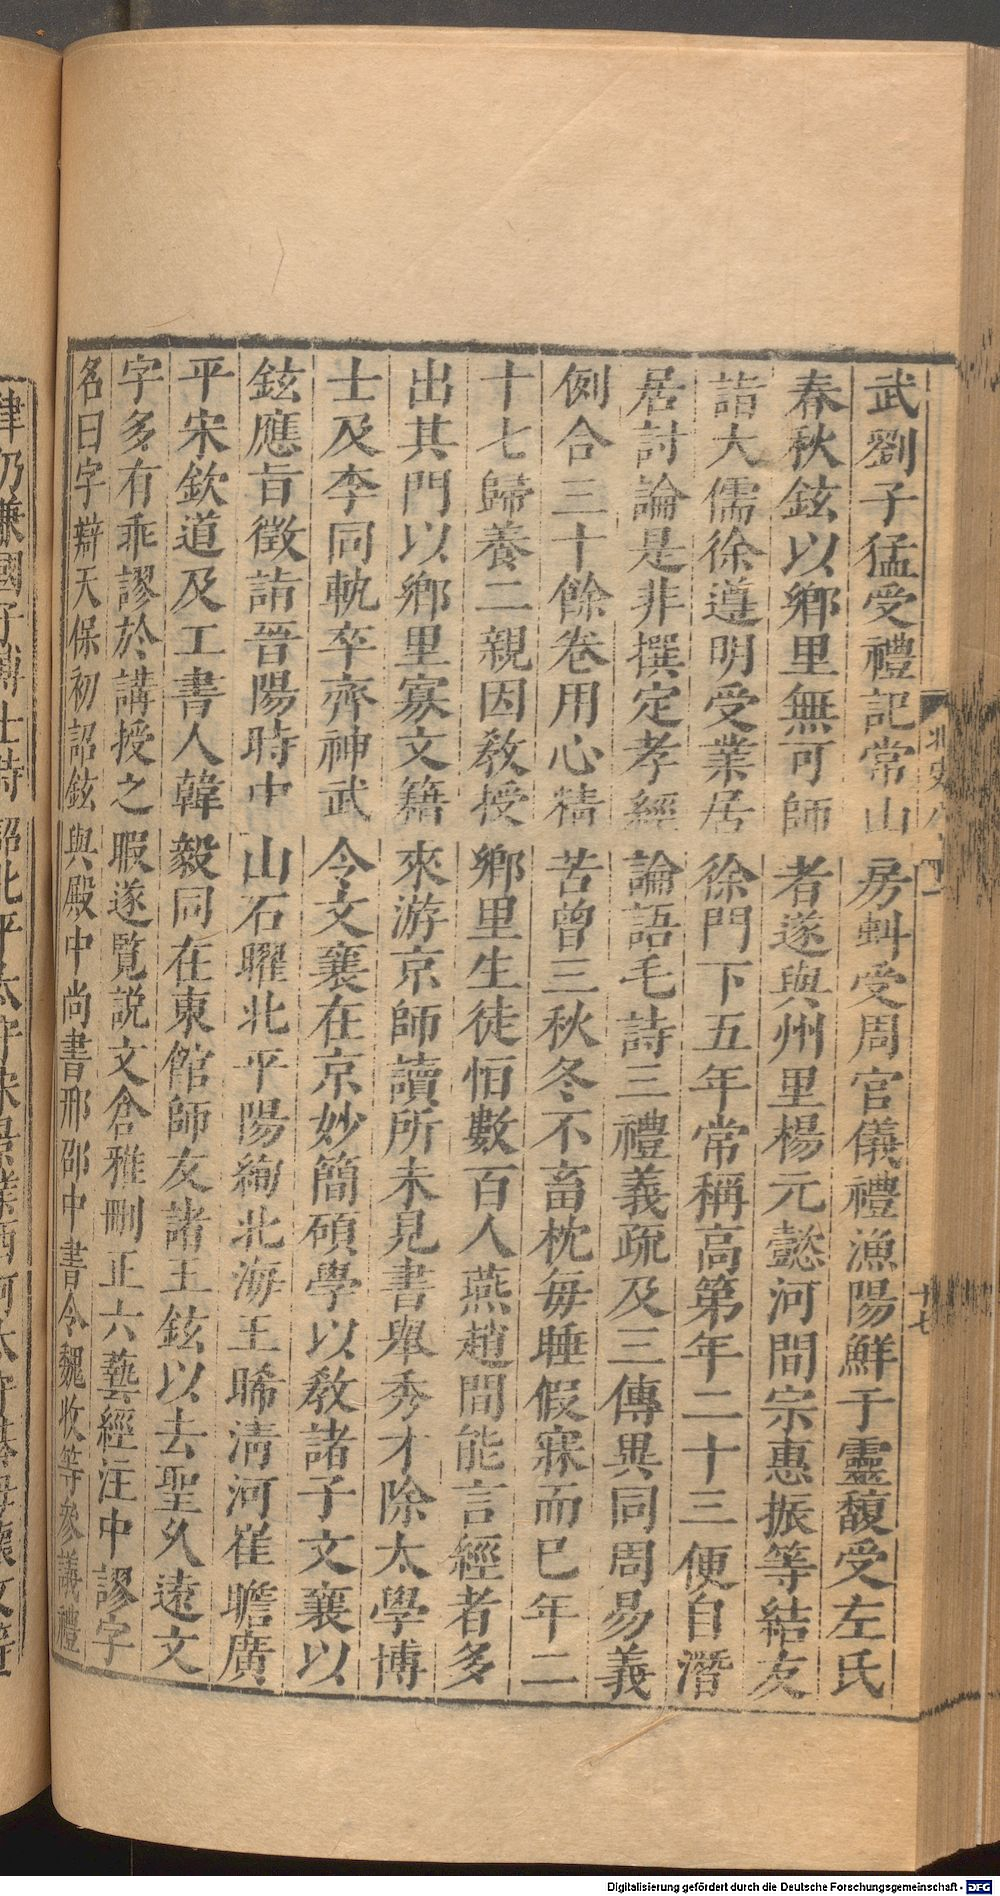 武劉子猛受禮記常山房虯受周官儀禮漁陽鮮于靈馥受左氏
春秋鉉以鄉里無可師者遂與州里楊元懿河間宗惠振等結友
詣大儒徐遵明受業居徐門下五年常稱高第年二十三便自潛
居討論是非撰定孝經論語毛詩三禮義疏及三傳異同周易義
例合三十餘卷用心精苦曾三秋冬不畜枕每睡假寐而已年二
十七歸養二親因教授鄉里生徒恒數百人燕趙間能言經者多
出其門以鄉里寡文籍來游京師讀所未見書舉秀才除太學博
士及李同軌卒齊神武令文襄在京妙簡碩學以教諸子文襄以
鉉應旨徵詣晉陽時中山石曜北平陽絢北海王晞清河崔瞻廣
平宋欽道及工書人韓毅同在東館師友諸王鉉以去聖久遠文
字多有乖謬於講授之暇遂覽說文倉雅刪正六藝經注中謬字
名曰字辯天保初詔鉉與殿中尚書邢邵中書令魏收等參議禮
律仍兼國子博士時詔北平太守宋景業西河太守綦母懷文等
北史八十一
廿七
Digitalisierung gefördert durch die Deutsche Forschungsgemeinschaft - DFG